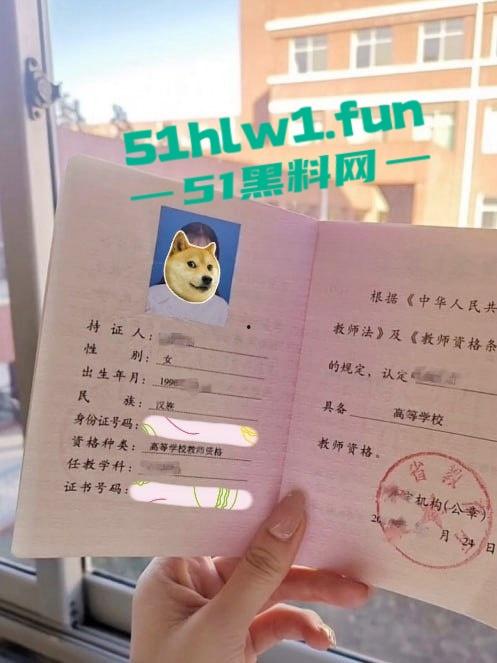 51hlw1.fun
— 51黑料网 —
持证人:
性别: 女
出生年月: 1996
民族: 汉族
身份证号码:
资格种类: 高等学校教师资格
任教学科:
证书号码:
根据《中华人民共
教师法》及《教师资格条
的规定, 认定
具备 高等学校
教师资格。
定机构(公章)
月 24 日
省 教